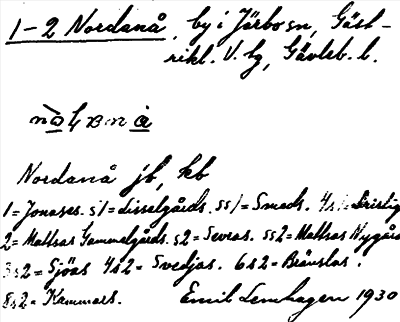 1-2 Nordanå, by i Järbo sn, Gäst-
rikl. V. bg, Gävleb. l.
Nordanå jb, kb
1 = Jonases. s1 = Lisselgårds. ss1 = Smeds.
2 = Mattsas Gammelgårds. s2 = Sevras. ss2 = Mattsas Nygårds
3s2 = Sjöas 4s2 = Svedjas. 6s2 = Brånslas.
8s2 = Kammars. Emil Lemhagen 1930